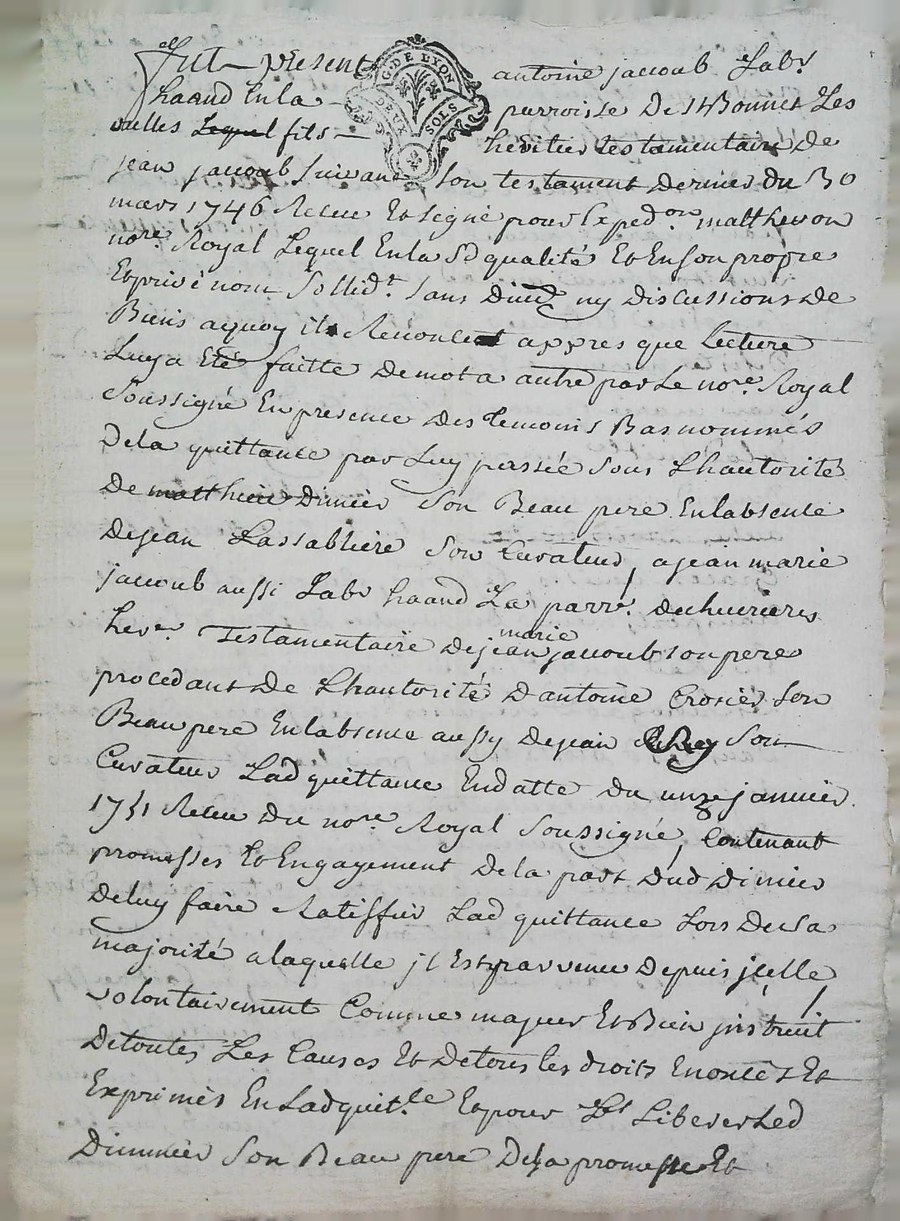 fut present antoine jacoub Lab.r
haand En la parroisse De St Bonnet Les
oulles Lequel fils heritier testamentaire De
jean jacoub suivant son testament Dernier du 30
mars 1746 Receu Et signé pour Exped.on matthevon
no.re Royal Lequel En la Sd qualité Et En son propre
Et privé nom Sollid.t sans Divi.. ny Discussions De
Biens aquoy il Renonce appres que Lecture
Luy a Eté faitte De mot a autre par Le no.re Royal
Soussigné En presence Des temoins Bas nommés
De la quittance par Luy passée sous L hautorité
De matthieu Dimier Son Beau pere En labsence
De jean Lassabliere son Curateur, a jean marie
jacoub aussi Lab.r haand La parr.e De chevrieres
her.er Testamentaire De jean marie jacoub son pere
procedant De L hautorité D antoine Crosier Son
Beau pere En labsence aussy De jean Rey son
Curateur Lad quittance En datte du unze janvier
1751 Receu Du no.re Royal Soussigné, Contenant
promesses Et Engagement De la part Dud Dimier
De luy faire Ratiffier Lad quittance Lors De sa
majorité a laquelle jl Est parvenu Depuis jcelle,
volontairement Comme majeur Et Bien jnstruit
De toutes Les Causes Et De tous les droits Enoncés Et
Exprimés En Lad quit.ce Et pour Liberer Led
Dimmier Son Beau pere De la promesse Et
G. DE LYON
DEUX SOLS